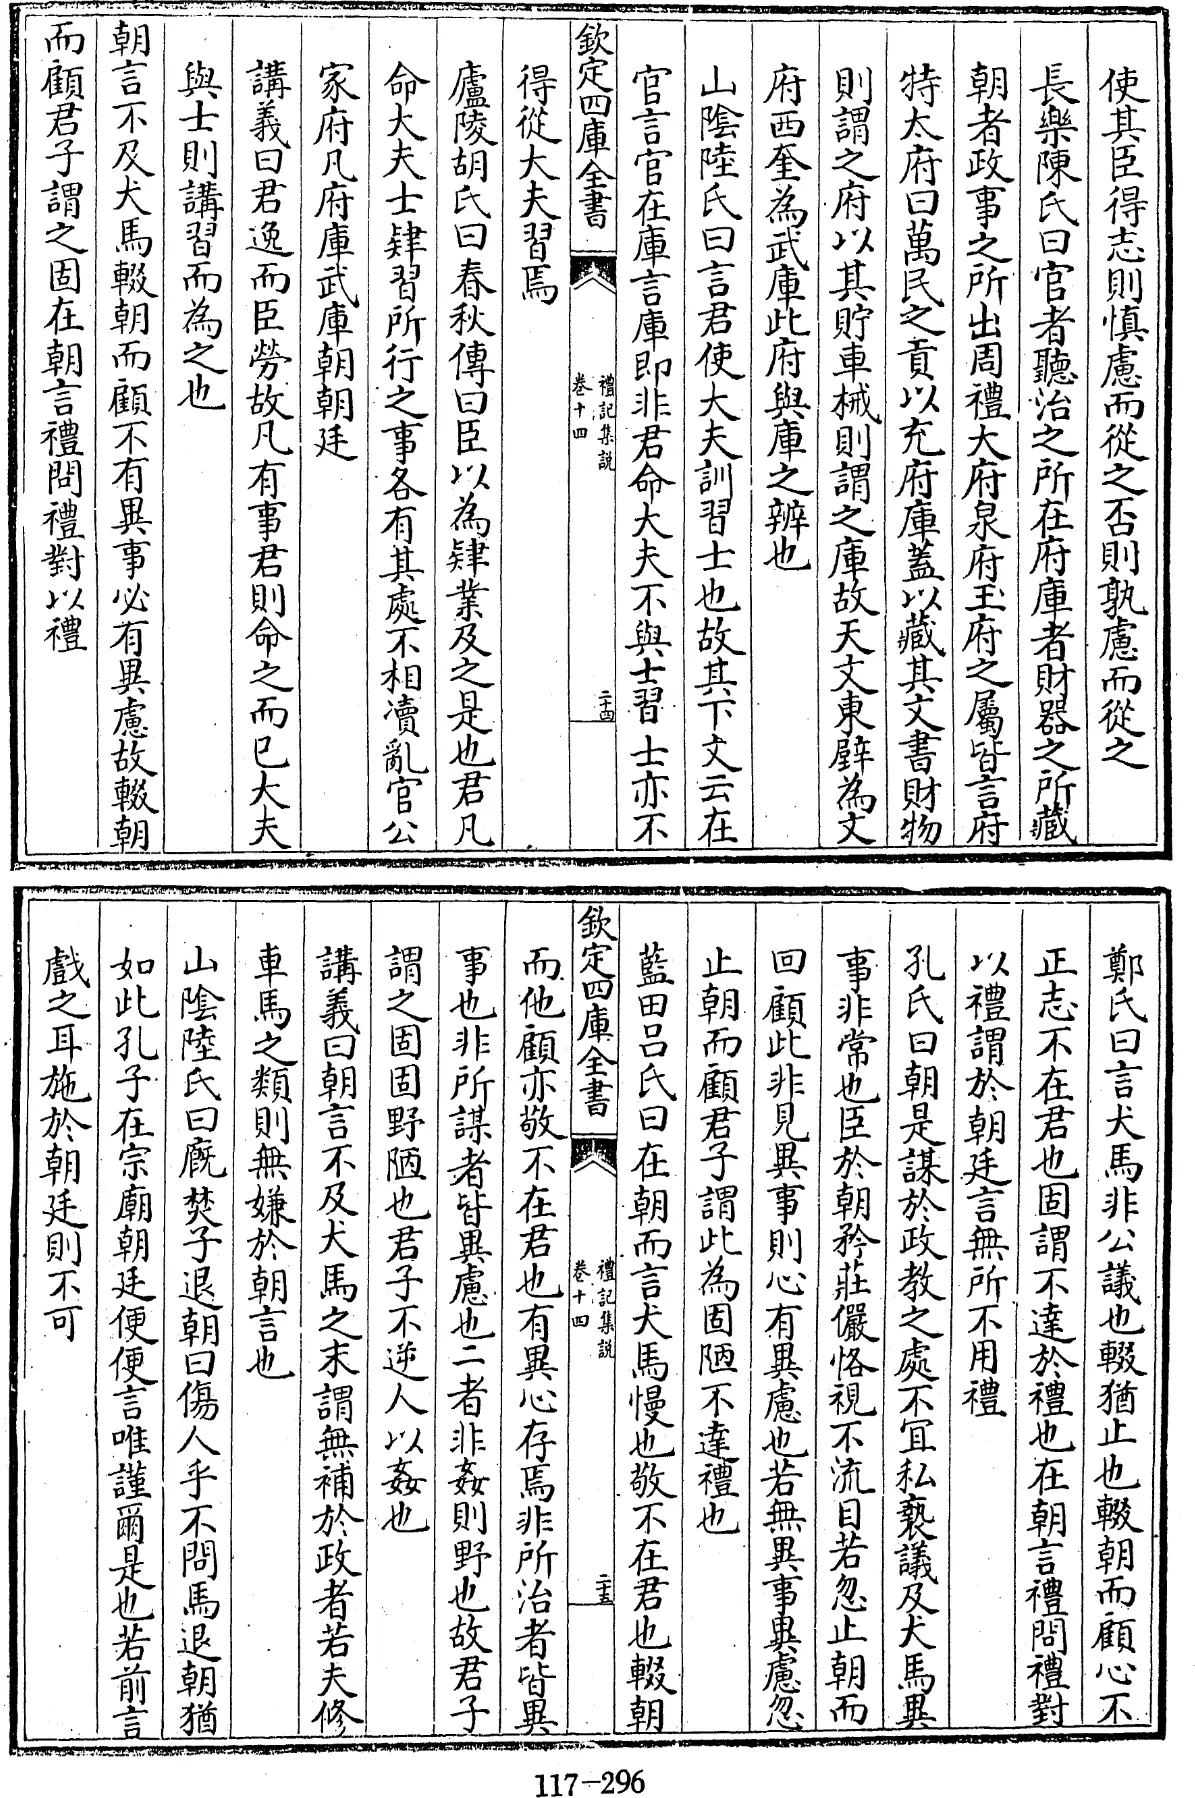 使其臣得志則慎慮而從之否則孰慮而從之
長樂陳氏曰官者聽治之所在府庫者財器之所藏
朝者政事之所出周禮大府泉府玉府之屬皆言府
特太府曰萬民之貢以充府庫蓋以藏其文書財物
則謂之府以其貯車械則謂之庫故天文東壁為文
府西奎為武庫此府與庫之辨也
山陰陸氏曰言君使大夫訓習士也故其下文云在
官言官在庫言庫即非君命大夫不與士習士亦不
欽定四庫全書
禮記集說
卷十四
二十四
得從大夫習焉
廬陵胡氏曰春秋傳曰臣以為肄業及之是也君凡
命大夫士肄習所行之事各有其處不相凟亂官公
家府凡府庫武庫朝朝廷
講義曰君逸而臣勞故凡有事君則命之而已大夫
與士則講習而為之也
朝言不及犬馬輟朝而顧不有異事必有異慮故輟朝
而顧君子謂之固在朝言禮問禮對以禮
鄭氏曰言犬馬非公議也輟猶止也輟朝而顧心不
正志不在君也固謂不達於禮也在朝言禮問禮對
以禮謂於朝廷言無所不用禮
孔氏曰朝是謀於政教之處不宜私褻議及犬馬異
事非常也臣於朝矜莊儼恪視不流目若忽止朝而
回顧此非見異事則心有異慮也若無異事異慮忽
止朝而顧君子謂此為固陋不達禮也
藍田呂氏曰在朝而言犬馬慢也敬不在君也輟朝
欽定四庫全書
禮記集說
卷十四
二十五
而他顧亦敬不在君也有異心存焉非所治者皆異
事也非所謀者皆異慮也二者非姦則野也故君子
謂之固固野陋也君子不逆人以姦也
講義曰朝言不及犬馬之末謂無補於政者若夫修
車馬之類則無嫌於朝言也
山陰陸氏曰廐焚子退朝曰傷人乎不問馬退朝猶
如此孔子在宗廟朝廷便便言唯謹爾是也若前言
戲之耳施於朝廷則不可
117-296